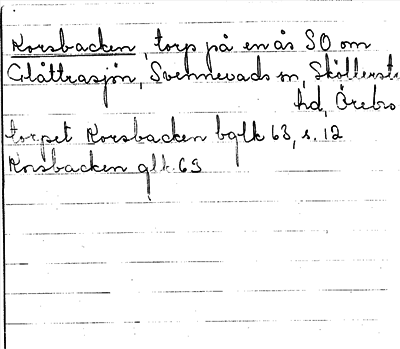 Korsbacken, torp på en ås SO om
Glåttrasjön, Svennevads sn, Sköllerst
hd, Örebro
torpet Korsbacken bglk 63, s. 12
Korsbacken glk 63